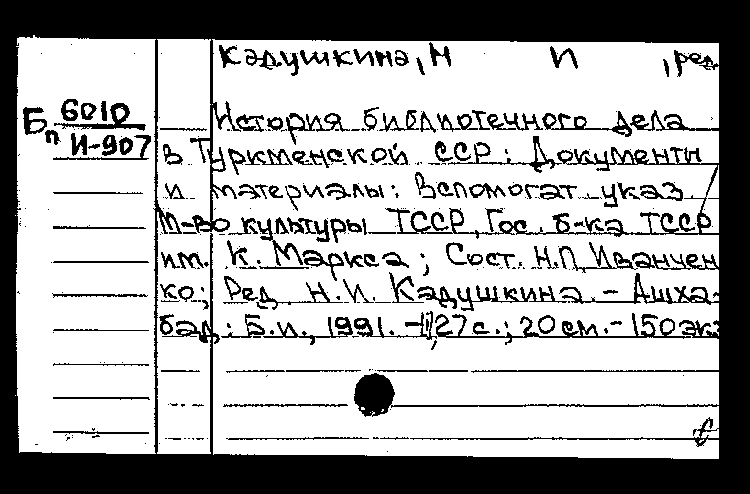 Кадушкина, Н И , ред
Бп 6010
И-907
История библиотечного дела
в Туркменской ССР: Документы
и материалы: Вспомогат. указ. /
М-во культуры ТССР, Гос. б-ка ТССР
им. К. Маркса; Сост. Н.П. Иванчен
ко; Ред. Н.И. Кадушкина. - Ашха-
бад: Б.и., 1991. - 27 с.; 20 см. - 150 экз